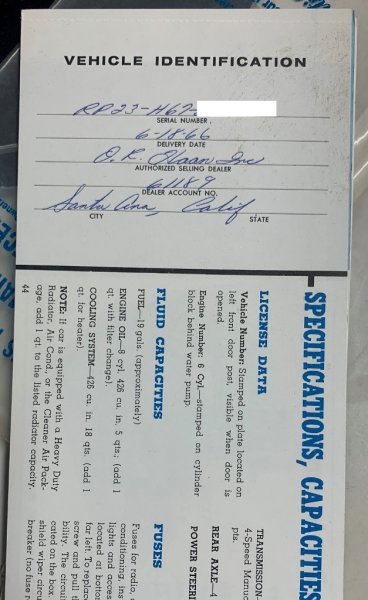 VEHICLE IDENTIFICATION
RP23-H67-
SERIAL NUMBER
6-18-66
DELIVERY DATE
O. R. Haan Inc
AUTHORIZED SELLING DEALER
61189
DEALER ACCOUNT NO.
Santa Ana, Calif
CITY STATE
SPECIFICATIONS, CAPACITIES
LICENSE DATA
Vehicle Number: Stamped on plate located on
left front door post, visible when door is
opened.
Engine Number: 6 Cyl.—stamped on cylinder
block behind water pump.
FLUID CAPACITIES
FUEL—19 gals (approximately)
ENGINE OIL—8 cyl. 426 cu. in. 5 qts.; (add 1
qt. with filter change).
COOLING SYSTEM—426 cu. in. 18 qts. (add 1
qt. for heater).
NOTE: If car is equipped with a Heavy Duty
Radiator, Air Cond., or the Cleaner Air Pack-
age, add 1 qt. to the listed radiator capacity.
44
TRANSMISSION—
4-Speed Manual
pts.
REAR AXLE—4
POWER STEERI
FUSES
Fuses for radio,
conditioning, ins
lights and acces
located at botto
far left. To replac
screw and pull t
bility. The circui
cated on the box
shield wiper circui
breaker (no fuse r